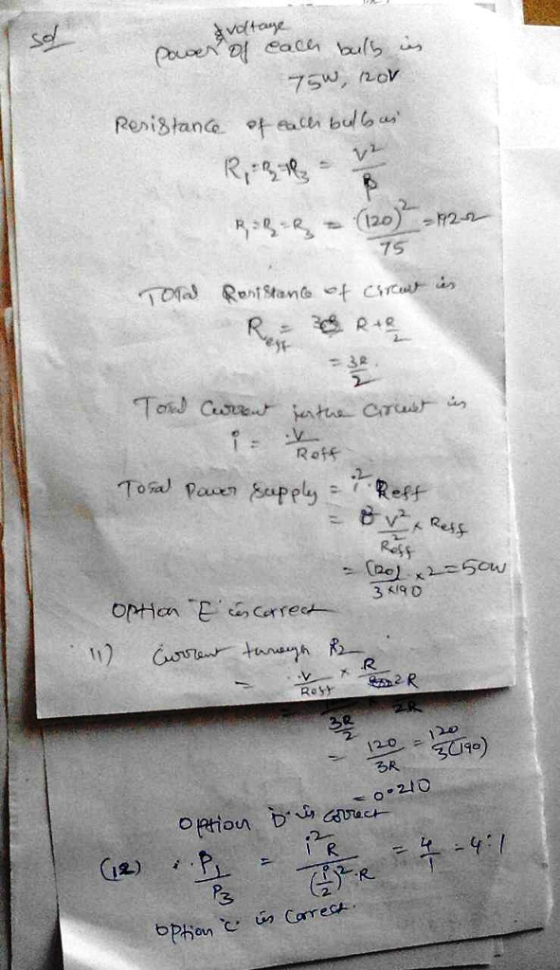 Sol
& voltage
Power of each bulb is
75W, 120V
Resistance of each bulb is
R₁=R₂=R₃ = V²/P
R₁=R₂=R₃ = (120)²/75 = 192Ω
Total Resistance of circuit is
Reff = R+R/2
= 3R/2.
Total Current in the Circuit is
i = V/Reff
Total Power Supply = i².Reff
= V²/R²eff × Reff
= (120)/3×190 × 2 = 50W
Option "E" is correct
11) Current through R₂
= V/Reff × R/2R
3R/2 2R
= 120/3R = 120/3(190)
= 0.210
Option D is correct
(12) P₁/P₃ = i²R/(i/2)².R = 4/1 = 4:1
Option 'C' is Correct.